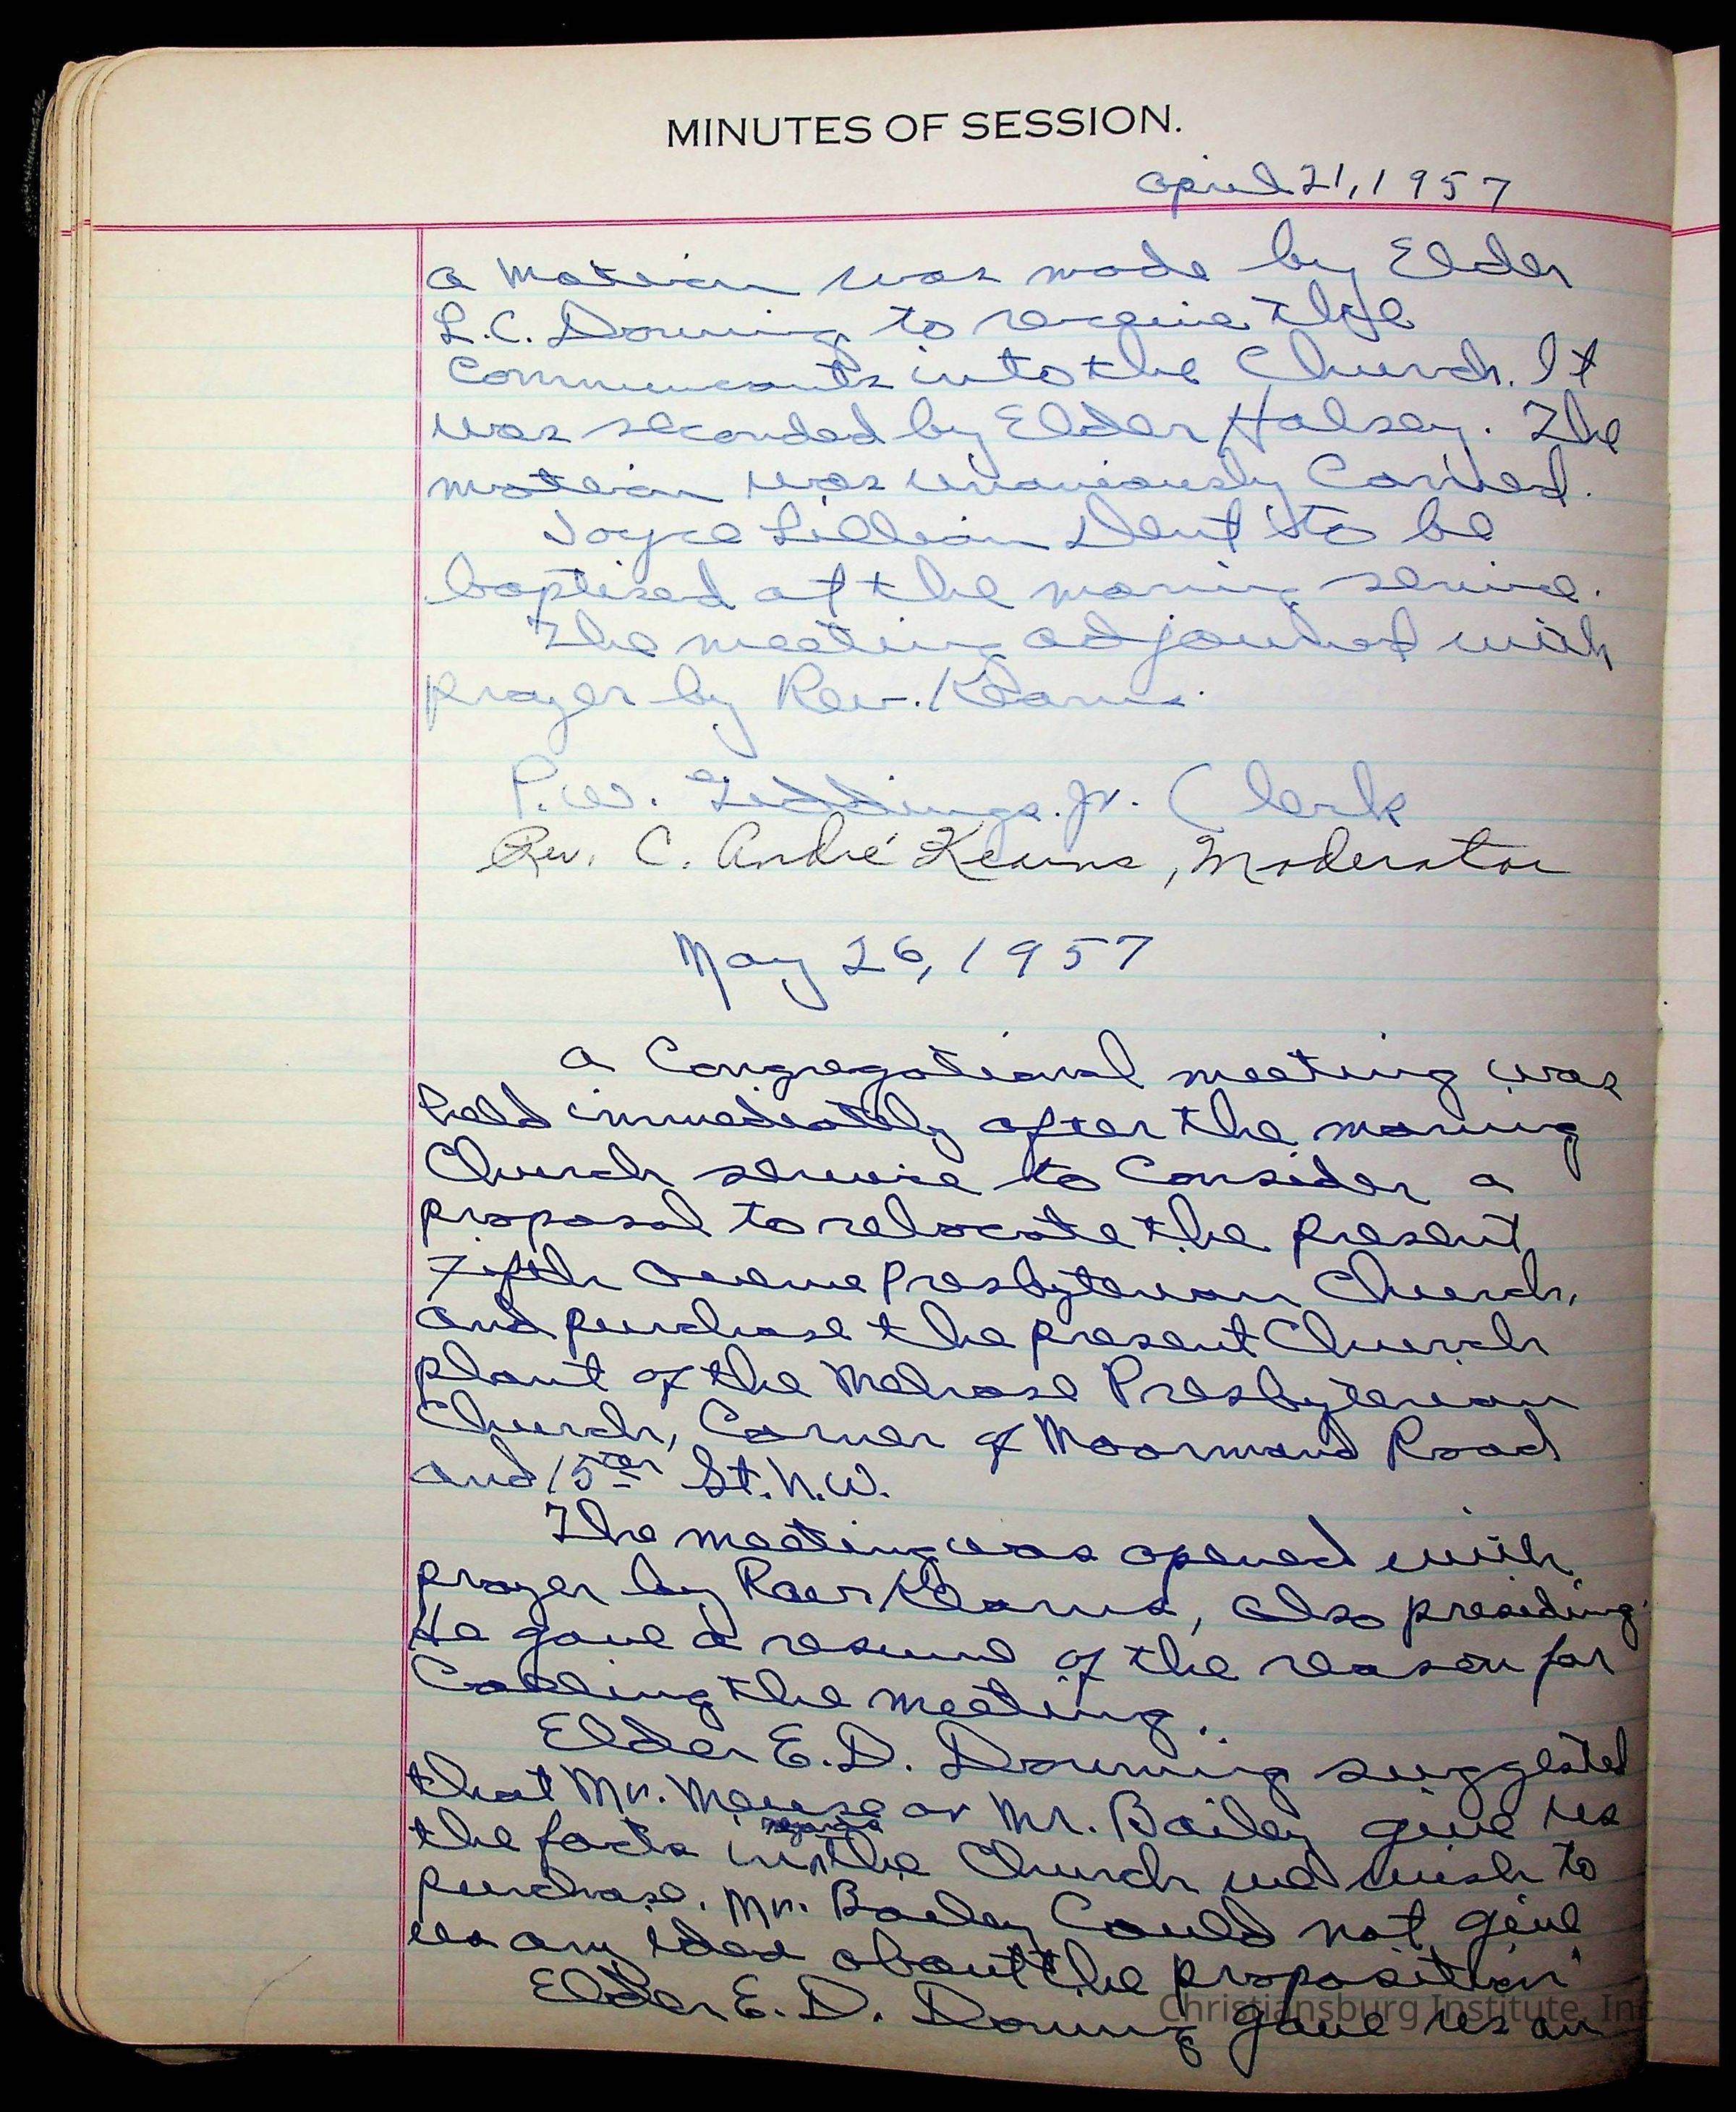 MINUTES OF SESSION.
April 21, 1957
A motion was made by Elder
L.C. Downing to receive the
Communicants into the Church. It
was seconded by Elder Halsey. The
motion was unaniously Carried.
Joyce Lillian Dent to be
baptised at the morning service.
The meeting adjourned with
prayer by Rev. Kearns.
P.W. Giddings. Jr. Clerk
Rev. C. André Kearns, Moderator
May 26, 1957
A Congregational meeting was
held immediately after the morning
Church service to Consider a
proposal to relocate the present
Fifth Avenue Presbyterian Church,
and purchase the present Church
plant of the Melrose Presbyterian
Church, Corner of Moormand Road
and 15th St. N.W.
The meeting was opened with
prayer by Rev. Kearns, also presiding.
He gave a resume of the reason for
Calling the meeting.
Elder E.D. Downing suggested
that Mr. Meuse or Mr. Bailey give us
the facts in regards the Church we wish to
purchase. Mr. Bailey Could not give
us any idea about the proposition
Elder E.D. Downing gave us an
Christiansburg Institute, Inc